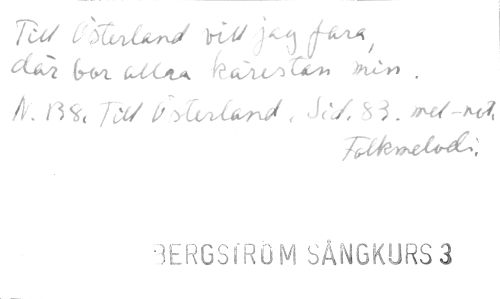 Till Österland vill jag fara,
där bor allra kärestan min.
N. 138. Till Österland. Sid. 83. mel-not.
Folkmelodi.
BERGSTRÖM SÅNGKURS 3